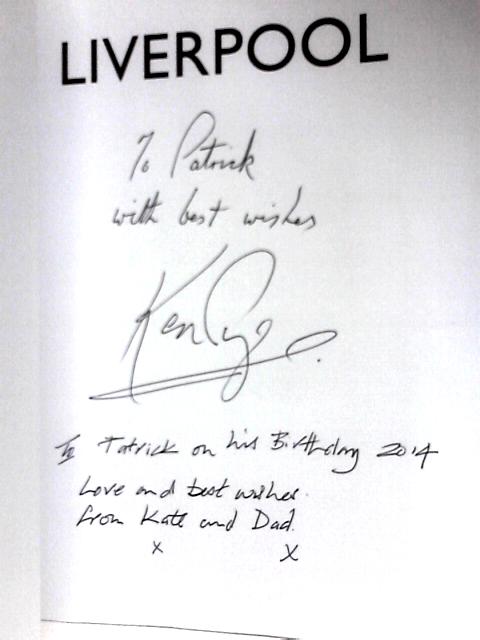 LIVERPOOL
To Patrick
with best wishes
Ken Pye
To Patrick on his Birthday 2014
Love and best wishes.
from Kate and Dad.
x X